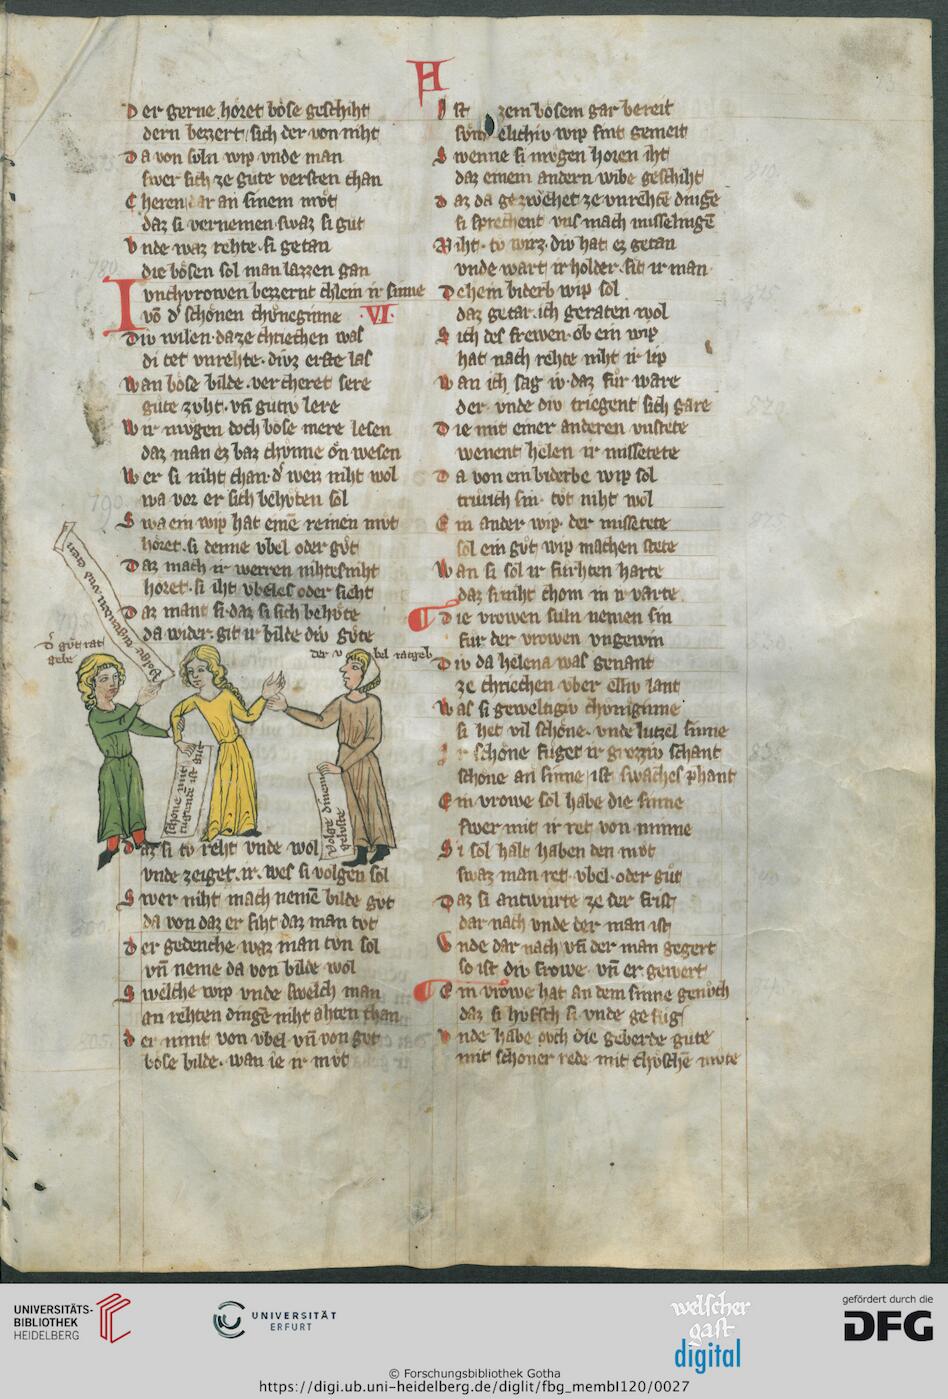 A
Der gerne horet bose geschiht
dern bezzert sich der von niht
Da von suln wip vnde man
swer sich ze gute versten chan
Cheren dar an sinem mvͦt
daz si vernemen swaz si gut
Vnde waz rehte si getan
die bosen sol man lazzen gan
Ivnchvrowen bezzernt chlein ir sinne
võ d schonen chuneginne · VI ·
Div wilen · da ze chriechen was
di tet vnrehte · divz erste las
Wan bose bilde · ver cheret sere
gute zvht · vñ gutiv lere
Wir mvgen doch bose mere lesen
daz man ez baz chvnne on wesen
Wer si niht chan · d weiz niht wol
wa vor er sich behvten sol
Swa ein wip hat einē reinen mvt
horet · si denne vbel oder gvt
Daz mach ir werren nihtesniht
horet · si iht vbeles oder siht
Daz mant si · daz si sich behvte
da wider · git ir bilde div gvte
d gvt rat
gebe
der vbel ratgeb
schone mit
tugende ist gut
Volge dinem
geluste
Daz si tv reht vnde wol
vnde zeiget · ir · wes si volgen sol
Swer niht mach nemē bilde gvt
da von daz er siht daz man tvt
Der gedenche waz man tvn sol
vñ neme da von bilde wol
Swelche wip vnde swelch man
an rehten dingē niht ahten chan
Der nimt von vbel vñ von gvt
bose bilde · wan ie ir mvt
Ist zem bosem gar bereit
elichiv wip sint gemeit
Swenne si mvgen horen iht
daz einem andern wibe geschiht
Daz da gezivhet ze vnrehtē dingē
si sprechent vns mach misselingē
Niht · tv wirz · div hat ez getan
vnde wart ir holder · sit ir man
Dehein biderb wip sol
daz getar · ich geraten wol
Sich des frewen · ob ein wip
hat nach rehte niht ir lip
Wan ich sag iv · daz fur ware
der vnde div triegent sich gare
Die mit einer anderen vnstete
wenent helen ir missetete
Da von ein biderbe wip sol
trurich sin · tvt niht wol
Ein ander wip · der missetete
sol ein gvt wip machen stete
Wan si sol ir furhten harte
daz si niht chom in ir varte
Die vrowen suln nemen sin
fur der vrowen vngewin
Div da helena was genant
ze chriechen vber elliv lant
Was si geweltigiv chuniginne
si het vil schone · vnde lutzel sinne
Ir schone fuget ir grozziv schant
schone an sinne ist swaches phant
Ein vrowe sol habe die sinne
swer mit ir ret von minne
Si sol halt haben den mvt
swaz man ret · vbel · oder gut
Daz si antwurte ze der frist
dar nach vnde der man ist
Vnde dar nach vñ der man gegert
so ist div frowe vñ er gewert
Ein vrowe hat an dem sinne genvch
daz si hvbsch si vnde gefug
Vnde habe ovch die geberde gute
mit schoner rede mit chvschē mvte
UNIVERSITÄTS-
BIBLIOTHEK
HEIDELBERG
UNIVERSITÄT
ERFURT
welscher
gast
digital
gefördert durch die
DFG
© Forschungsbibliothek Gotha
https://digi.ub.uni-heidelberg.de/diglit/fbg_membI120/0027